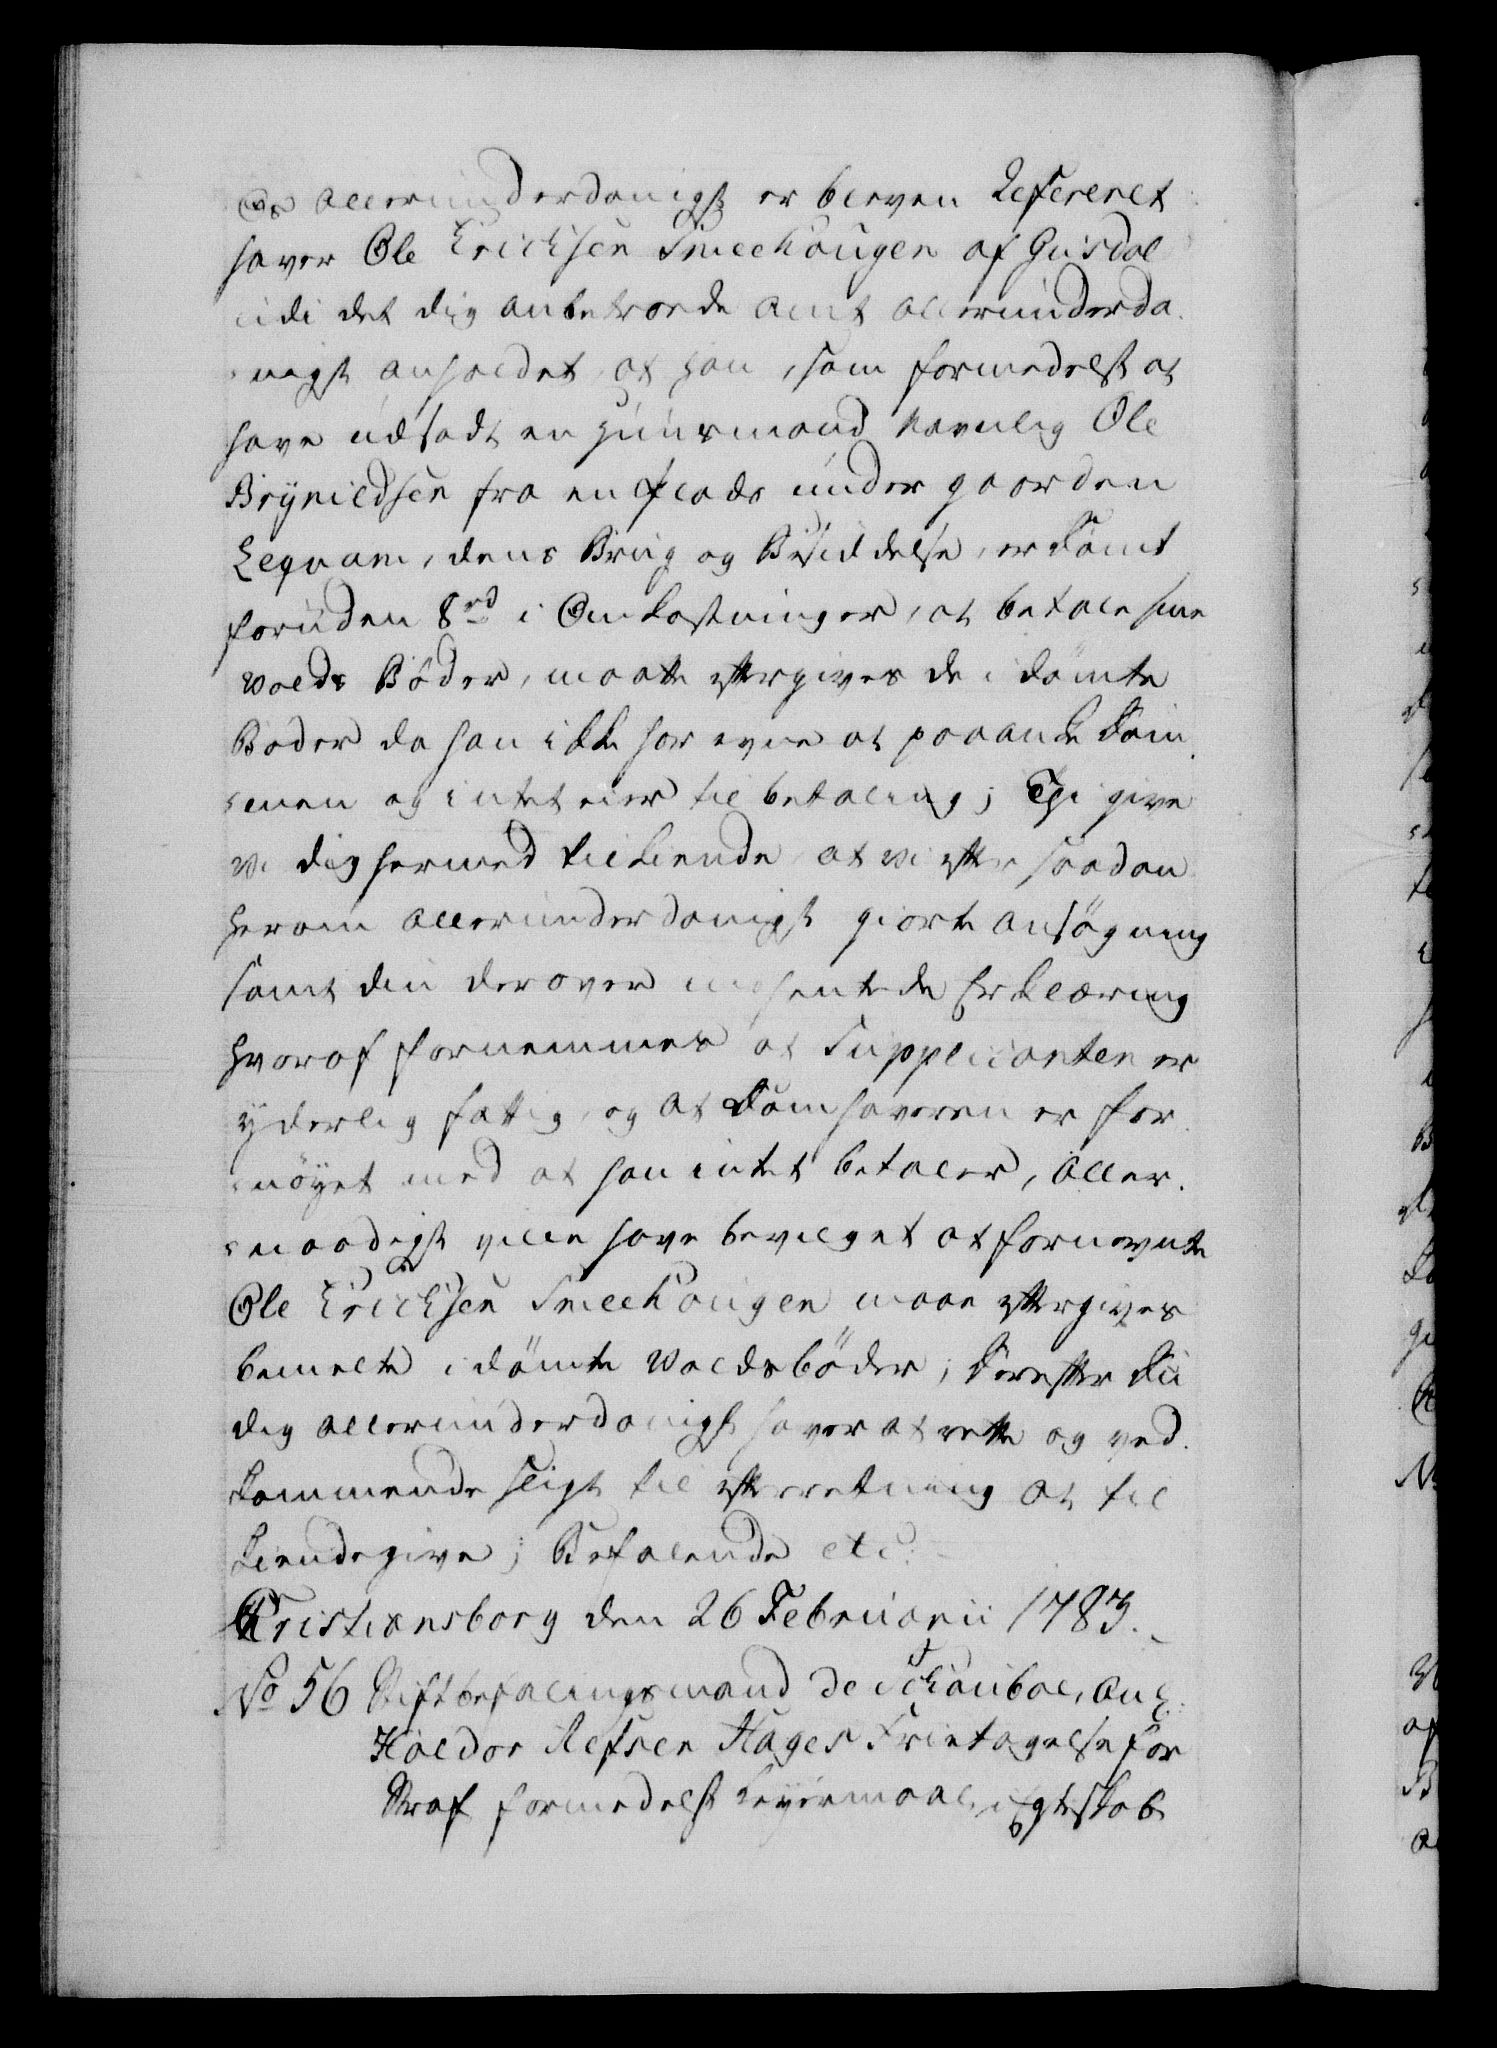 Os allerunderdanigst er bleven Refereret
haver Ole Erichsen Smeehougen af Gusdal
udi det dig anbetroede Amt allerunderda-
-nigst anholdet, at han, som formedelst at
have udsadt en Huusmand navnlig Ole
Brynildsen fra en Plads under gaarden
Leqvam, dens Brug og Besiddelse, er dömt
foruden 8 rd i Omkostninger, at betale sine
Volds Böder, maatte eftergives de idömte
Böder da han ikke har evne at paaanke Dom-
-men og intet eier til betaling; Thi give
Vi dig hermed tilkiende, at vi efter saadan
herom allerunderdanigst giorte Ansögning
samt din derover indhentede Erklæring
hvoraf fornemmes at Supplicanten er
yderlig fattig, og at Domhaveren er for-
-nöyet med at han intet betaler, Aller-
-naadigst ville have bevilget at fornevnte
Ole Erichsen Smeehougen maae eftergives
bemelte idömte Voldsböder; Derefter Du
dig allerunderdanigst haver at rette og ved-
kommende sligt til efterretning at til
kiendegive; Befalende etc:
Christiansborg den 26 Februarii 1783.
No 56 Stiftbefalingsmand de Schouboe, Anl:
Haldor Refsen Hages Frietagelse for
Straf formedelst Leyermaal i Egteskab